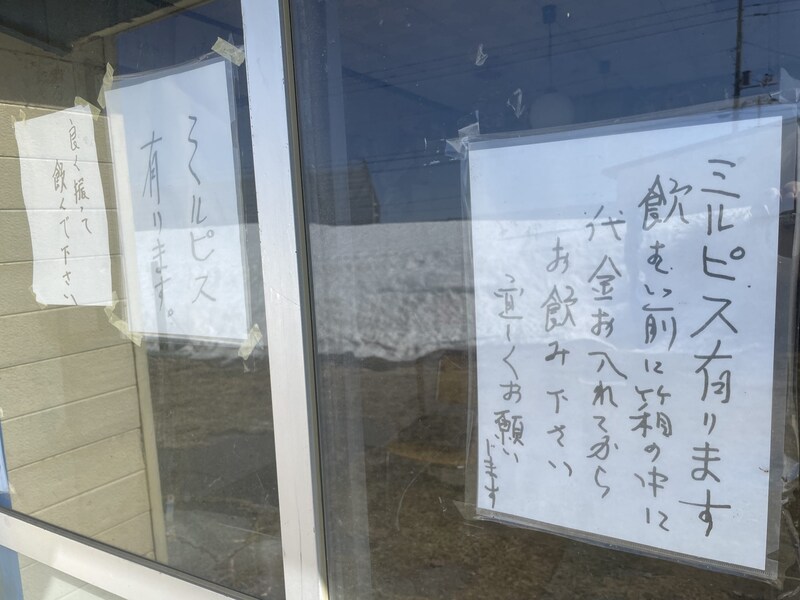 ミルピス有ります
飲む前に箱の中に
代金お入れてから
お飲み下さい
宜しくお願い
します
ミルピス
有ります。
良く振って
飲んで下さい